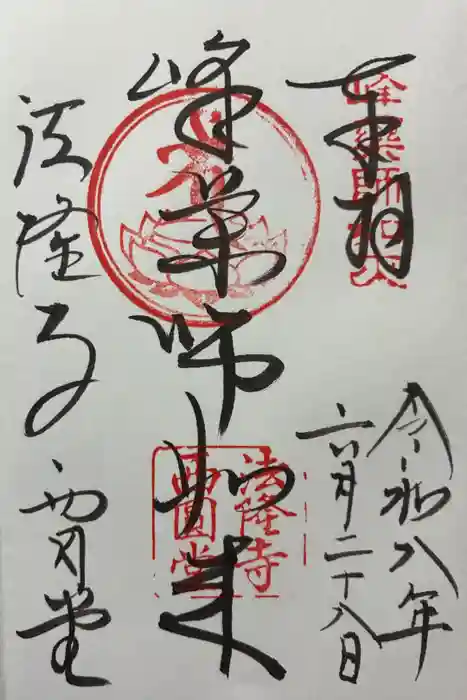 奉拝
峰薬師如来
令和八年
六月二十八日
峰薬師如来
法隆寺
西圓堂
法隆寺西円堂